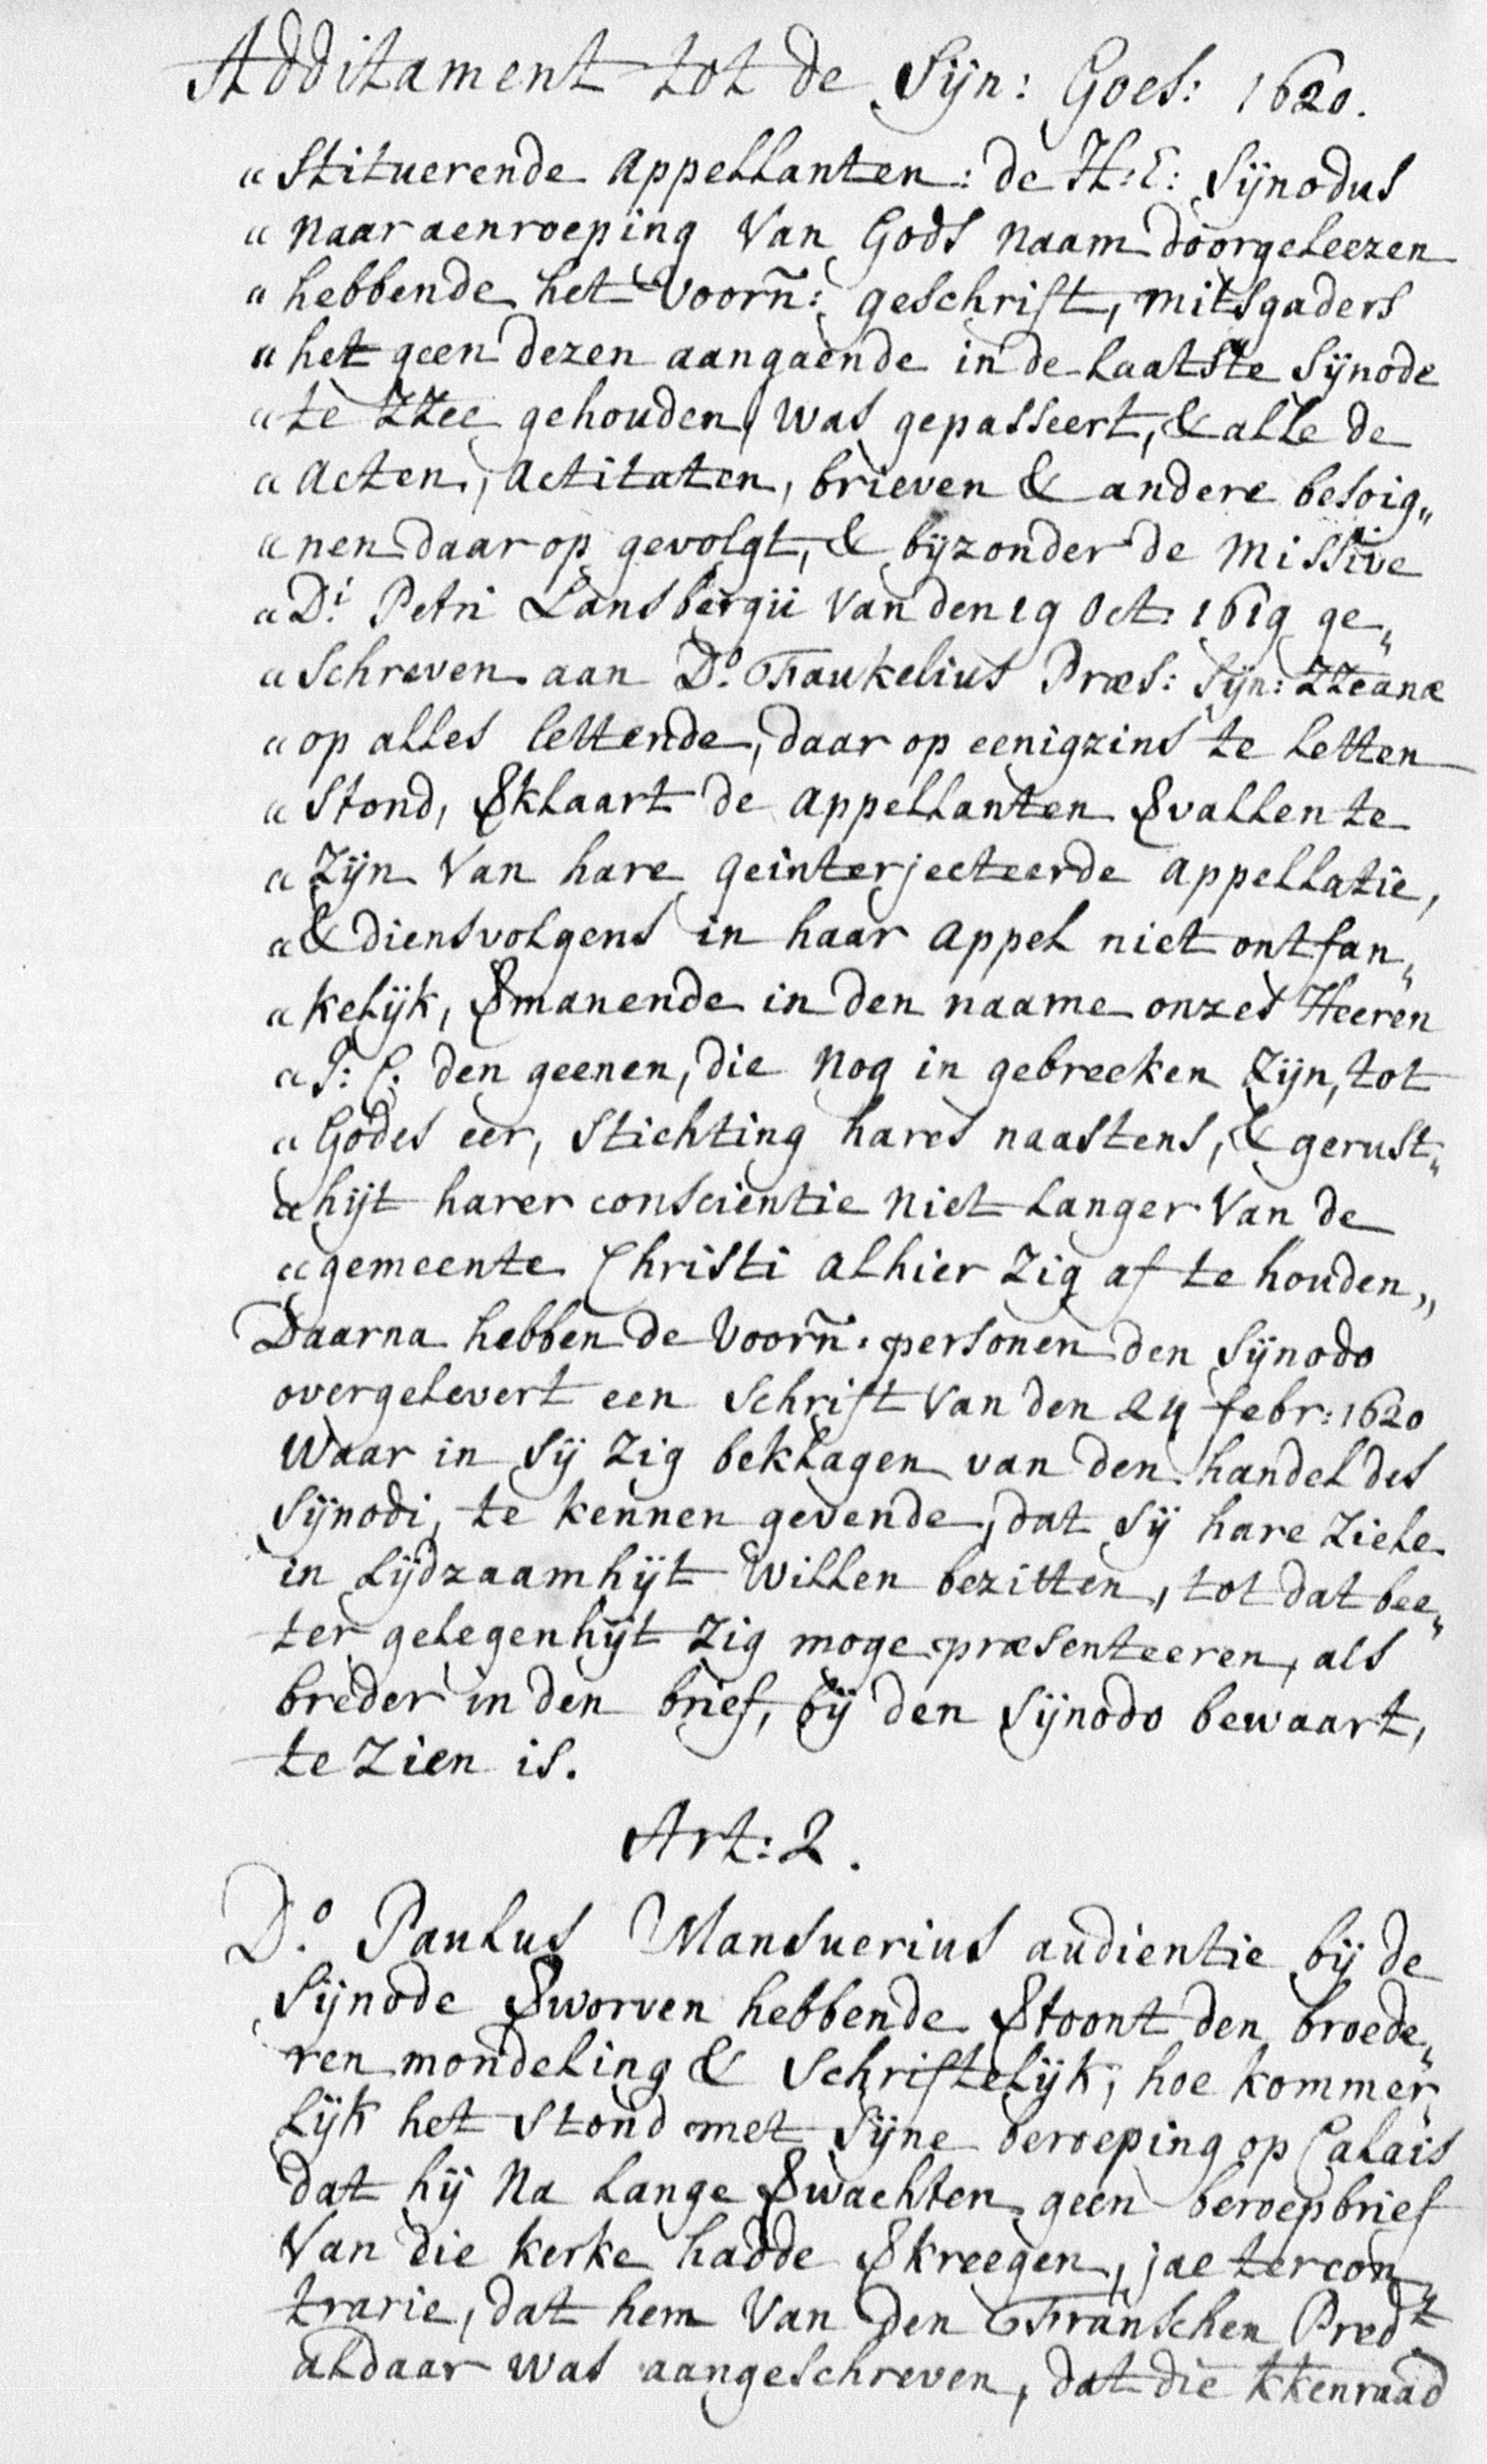 Additament tot de Sijn: Goes: 1620.
" Stituerende Appellanten: de H: E: Sijnodus
" naar aenroeping Van Gods naam doorgeleezen
" hebbende het Voorñ: geschrift, mitsgaders
" het geen dezen aangaende in de laatste Sijnode
" te ZZee gehouden, was gepasseert, & alle de
" Acten, Actitaten, brieven & andere besoig„
" nen daar op gevolgt, & bijzonder de Missive
" Di. Petri Lansbergii Van den 19 Oct: 1619 ge„
" Schreven aan Do. Faukelius Præs: Sijn: ZZeanæ
" op alles lettende, daar op eenigzins te letten
" Stond, §klaart de Appellanten §vallen te
" Zijn Van hare geinterjecteerde Appellatie,
" & diensvolgens in haar Appel niet ontfan„
" kelijk, §manende in den naame onzes Heeren
" J: C: den geenen, die nog in gebreeken Zijn, tot
" Godes eer, Stichting hares naastens, & gerust„
" hijt harer conscientie niet langer Van de
" gemeente Christi alhier Zig af te houden„
Daarna hebben de Voorñ: personen den Sijnodo
overgelevert een Schrift Van den 24 febr: 1620
Waar in Sij Zig beklagen van den handel des
Sijnodi, te kennen gevende, dat Sij hare Ziele
in Lijdzaamhijt Willen bezitten, tot dat bee„
ter gelegenhijt Zig moge præsenteeren, als
breder in den brief, bij den Sijnodo bewaart,
te Zien is.
Art: 2.
Do. Paulus Mansuerius audientie bij de
Sijnode §worven hebbende §toont den broede„
ren mondeling & Schriftelijk, hoe kommer„
lijk het Stond met Sijne beroeping op Calais
dat hij Na lange §wachten geen beroepbrief
Van die kerke hadde §kreegen, jae ter con„
trarie, dat hem Van den Franschen Predt
aldaar was aangeschreven, dat die kkenraad